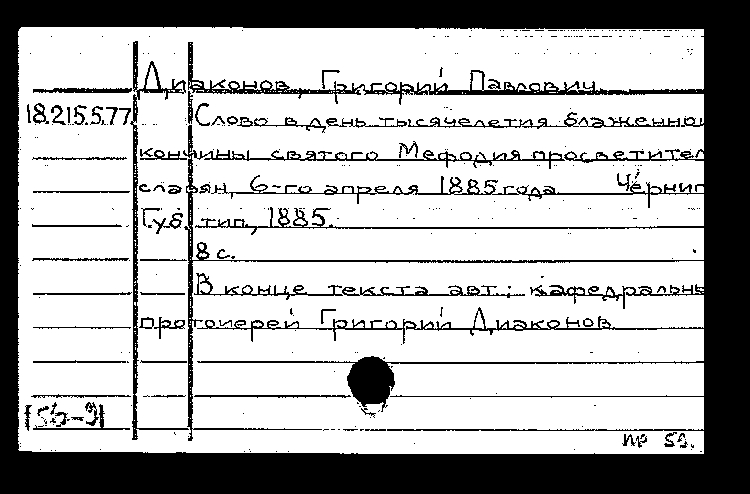 Диаконов, Григорий Павлович
18.215.5.77. Слово в день тысячелетия блаженной
кончины святого Мефодия просветител
славян, 6-го апреля 1885 года Черниг
Губ. тип., 1885.
8 с.
В конце текста авт.: кафедральны
протоиерей Григорий Диаконов
[56-9]
пр 59.